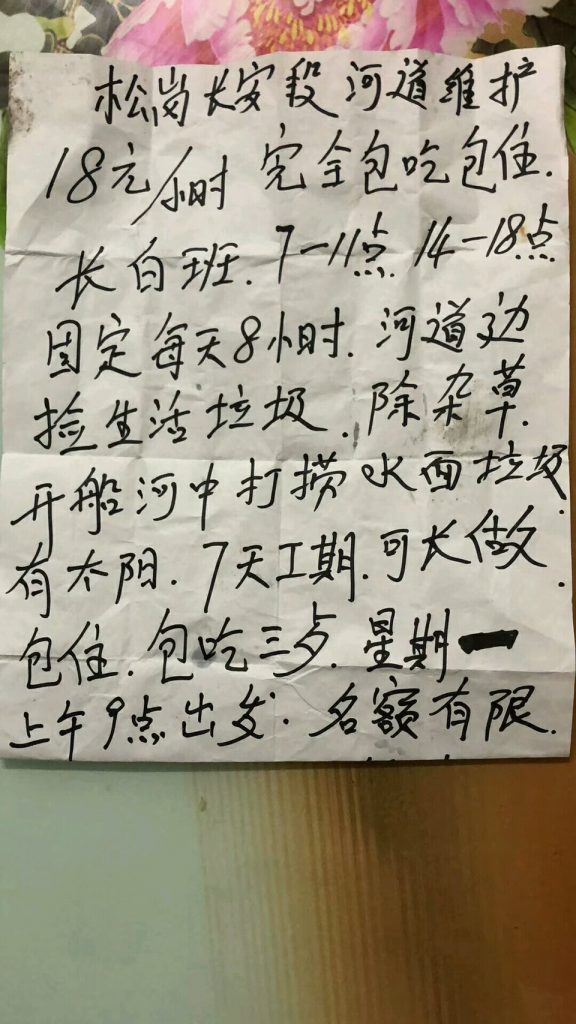 松岗长安段河道维护
18元/小时 完全包吃包住.
长白班. 7一11点. 14一18点
固定每天8小时. 河道边
捡生活垃圾. 除杂草.
开船河中打捞水面垃圾.
有太阳. 7天工期. 可长做.
包住. 包吃三歺. 星期一
上午9点出发. 名额有限.